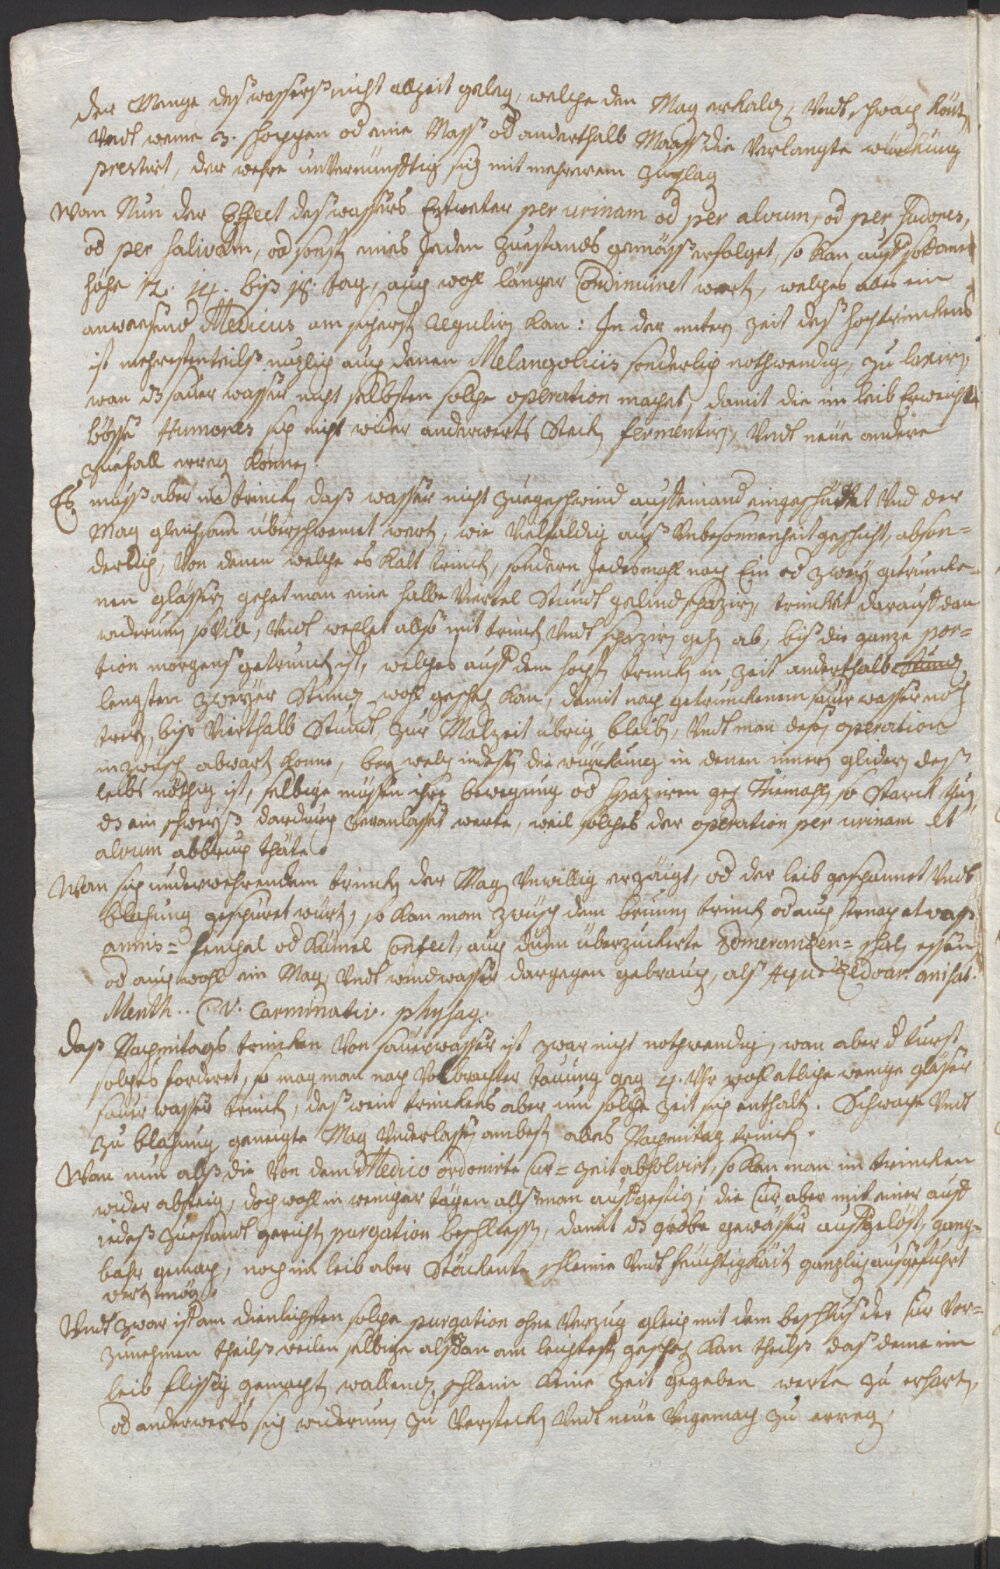 der Menge deß wassers nicht allzeit geleg, welche den Mag erkalt, Vndt schwach
Vndt wenn 3. schoppen od eine Mass od anderthalb Maass die Verlangte würckung
prestirt, der wehre unVernünfftig sich mit mehrerem
Wan Nun der Effect deß wassers Entweter per urinam od per alvum, od per sudores,
od per salivam, od sonst eines Jeden Zuestands gemäss erfolget, so kan auff
höhe 12. 14. biß 18. tag, auch wohl länger Continuirt wert, welches alles ein
anwesend Medicus am sicherst regulirn kan: In der mitten Zeit deß hochtrinckens
ist mehrestentheilß nuzlich auch denen Melangolicis sonderlich nothwendig, zu laxirn,
wan dz sauer wasser nicht selbsten solche operation machet, damit die im leib Erweichte
bösse Humores sich nicht wider anderwerts Steck, fermentirn, Vndt neue andere
Zuefäll erreg können.
Es muß aber im trinck daß wasser nicht zuegeschwind auffeinand eingeschüttet Vnd der
Mag gleichsam überschwemt wert, wie Vielfaldig auß Vnbesonnenheit geschicht, abson=
derlich, Von denen welche es kalt trinck, sondern Jedesmahl nach Ein od Zwey getruncke=
nen gläsern gehet man eine halbe Viertel Stundt gelind spazirn, trincket darauff dan
widerum so Vill, Vndt wechslet also mit trinck Vndt spazirn gehn ab, biß die ganze por=
tion morgens getrunck ist, welches auff dem höchst trinck in Zeit anderthalb Stund
lengsten Zweyer Stund wohl gescheh kan, damit nach getrunckenem sauer wasser noch
drey, biß Vierthalb Stundt, zur Malzeit übrig bleib, Vndt man dess operation
inzwisch abwart könne, bey welch indess die würckung in denen innern glidern deß
leibs nöthig ist, selbige müssen ihre bewegung od spaziren geh Niemahls so Starck thun,
dz ein schweiß dardurch Veranlasset werte, weil solches der operation per urinam et
alvum abbruch thäte.
Wan sich underwehrendem trinck der Mag Vnwillig erzäigt, od der leib gespannet Vndt
blähung gespüret würt, so kan man Zwisch dem brunn trinck od auch hernach etwaß
annis= fenchel od Kümel Confect, auch dünn überzuckerte Pomerantzen= schal essen
od auch wohl ein Mag Vndt windwasser dargegen gebrauch, alß Aqu. Zedoar. anisat.
Menth.. Carminativ.
Daß Nachmitags trincken Von sauerwasser ist zwar nicht nothwendig, wan aber d durst
solches forderet, so mag man nach Volbrachter dauung geg 4. Vhr wohl etliche wenige gläser
sauer wasser trinck, deß wein trinckens aber um solche Zeit sich enthalt. Schwache Vndt
zu blähung geneigte Mag Vnderlassen am best alles Nachmitag trinck.
Wan nun alß die Von dem Medico ordonirte Cur= Zeit absolvirt, so kan man im trincken
wider absteig, doch wohl in weniger tägen alß man auffgestig, die Cur aber mit einer auff
iedeß Zuestandt gericht purgation beschliess, damit dz grobe gewässer auffgelöst, gang=
bahr gemach, noch im leib aber Stöckente schleime Vndt feüchtigkäit gänzlich außgeführt
wert mög.
Vndt zwar ist am dienlichsten solche purgation ohne Verzug gleich mit dem beschluß der Cur Vor=
zunehmen theilß weilen selbige alßdan am leichtest gescheh kan theilß daß deme im
leib flissig gemacht wallend schleim keine Zeit gegeben werte zu erhart,
od anderwerts sich widerum zu Versteck Vndt neue Vngemach zu erreg.